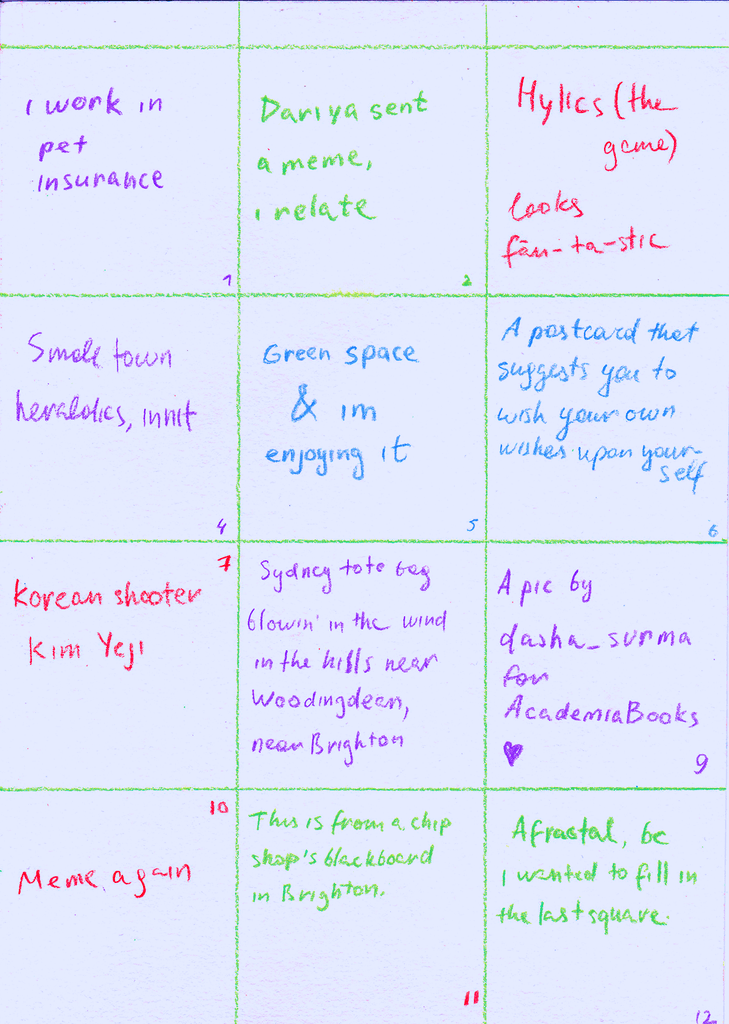 I work in
pet
insurance
1
Dariya sent
a meme,
I relate
2
Hylics (the
game)
looks
fan-ta-stic
Small town
heraldics, innit
4
Green space
& im
enjoying it
5
A postcard that
suggests you to
wish your own
wishes upon your-
self
6
7
Korean shooter
Kim Yeji
Sydney tote bag
blowin' in the wind
in the hills near
Woodingdean,
near Brighton
A pic by
dasha_surma
for
AcademiaBooks
♥
9
10
Meme again
This is from a chip
shop's blackboard
in Brighton.
11
A fractal, bc
I wanted to fill in
the last square.
12